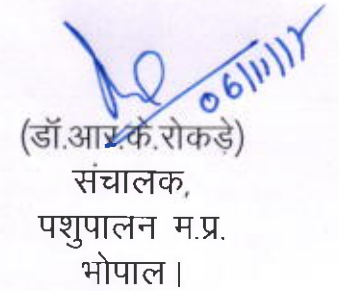 06/11/17
(डॉ.आर.के.रोकड़े)
संचालक,
पशुपालन म.प्र.
भोपाल।